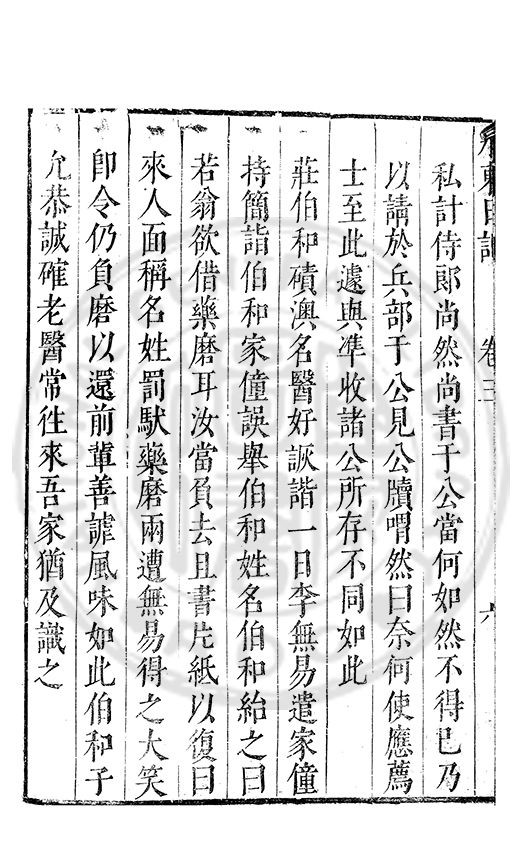 私計侍郎尚然尚書于公當何如然不得已乃
以請於兵部于公見公牘喟然曰奈何使應薦
士至此遽與準收諸公所存不同如此
莊伯和磧澳名醫好詼諧一日李無易遣家僮
持簡詣伯和家僮誤舉伯和姓名伯和紿之曰
若翁欲借藥磨耳汝當負去且書片紙以復曰
來人面稱名姓罰馱藥磨兩遭無易得之大笑
卽令仍負磨以還前輩善謔風味如此伯和子
允恭誠確老醫常往來吾家猶及識之
卷三
六